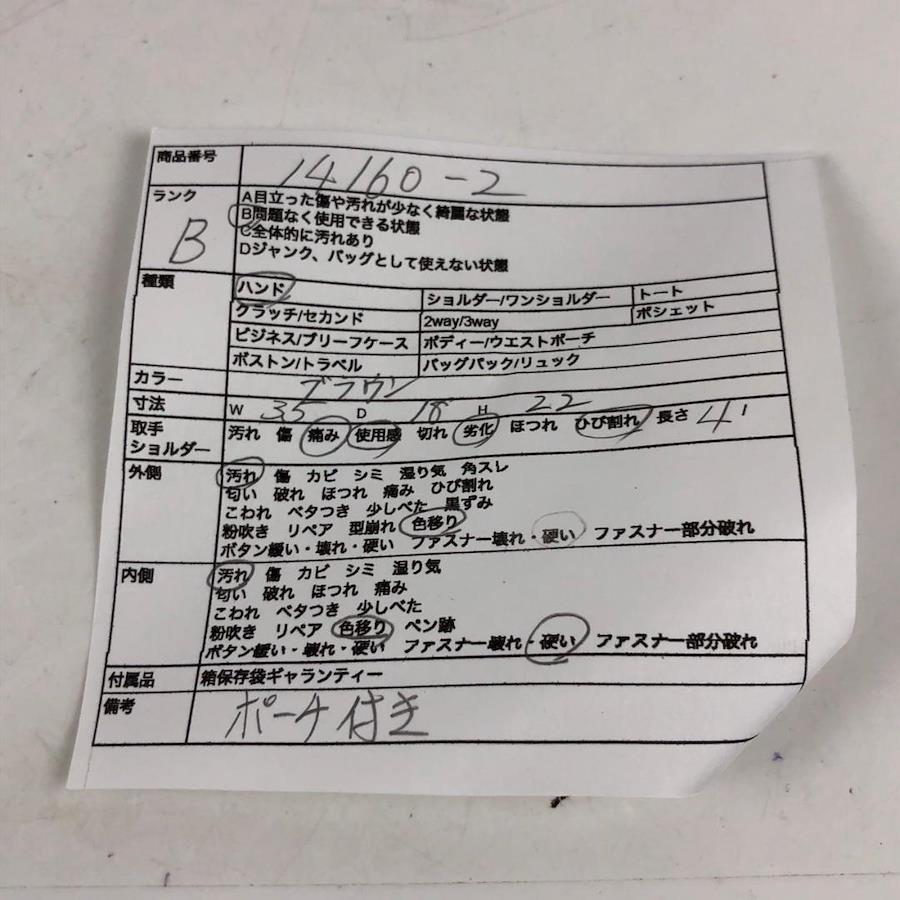 商品番号 14160-2
ランク B
A目立った傷や汚れが少なく綺麗な状態
B問題なく使用できる状態
C全体的に汚れあり
Dジャンク、バッグとして使えない状態
種類 ハンド ショルダー/ワンショルダー トート
クラッチ/セカンド 2way/3way ポシェット
ビジネス/ブリーフケース ボディー/ウエストポーチ
ボストン/トラベル バッグパック/リュック
カラー ブラウン
寸法 W 35 D 18 H 22
取手 汚れ 傷 痛み 使用感 切れ 劣化 ほつれ ひび割れ 長さ 41
ショルダー
外側 汚れ 傷 カビ シミ 湿り気 角スレ
匂い 破れ ほつれ 痛み ひび割れ
こわれ ベタつき 少しべた 黒ずみ
粉吹き リペア 型崩れ 色移り
ボタン緩い・壊れ・硬い ファスナー壊れ・硬い ファスナー部分破れ
内側 汚れ 傷 カビ シミ 湿り気
匂い 破れ ほつれ 痛み
こわれ ベタつき 少しべた
粉吹き リペア 色移り ペン跡
ボタン緩い・壊れ・硬い ファスナー壊れ・硬い ファスナー部分破れ
付属品 箱保存袋ギャランティー
備考 ポーチ付き